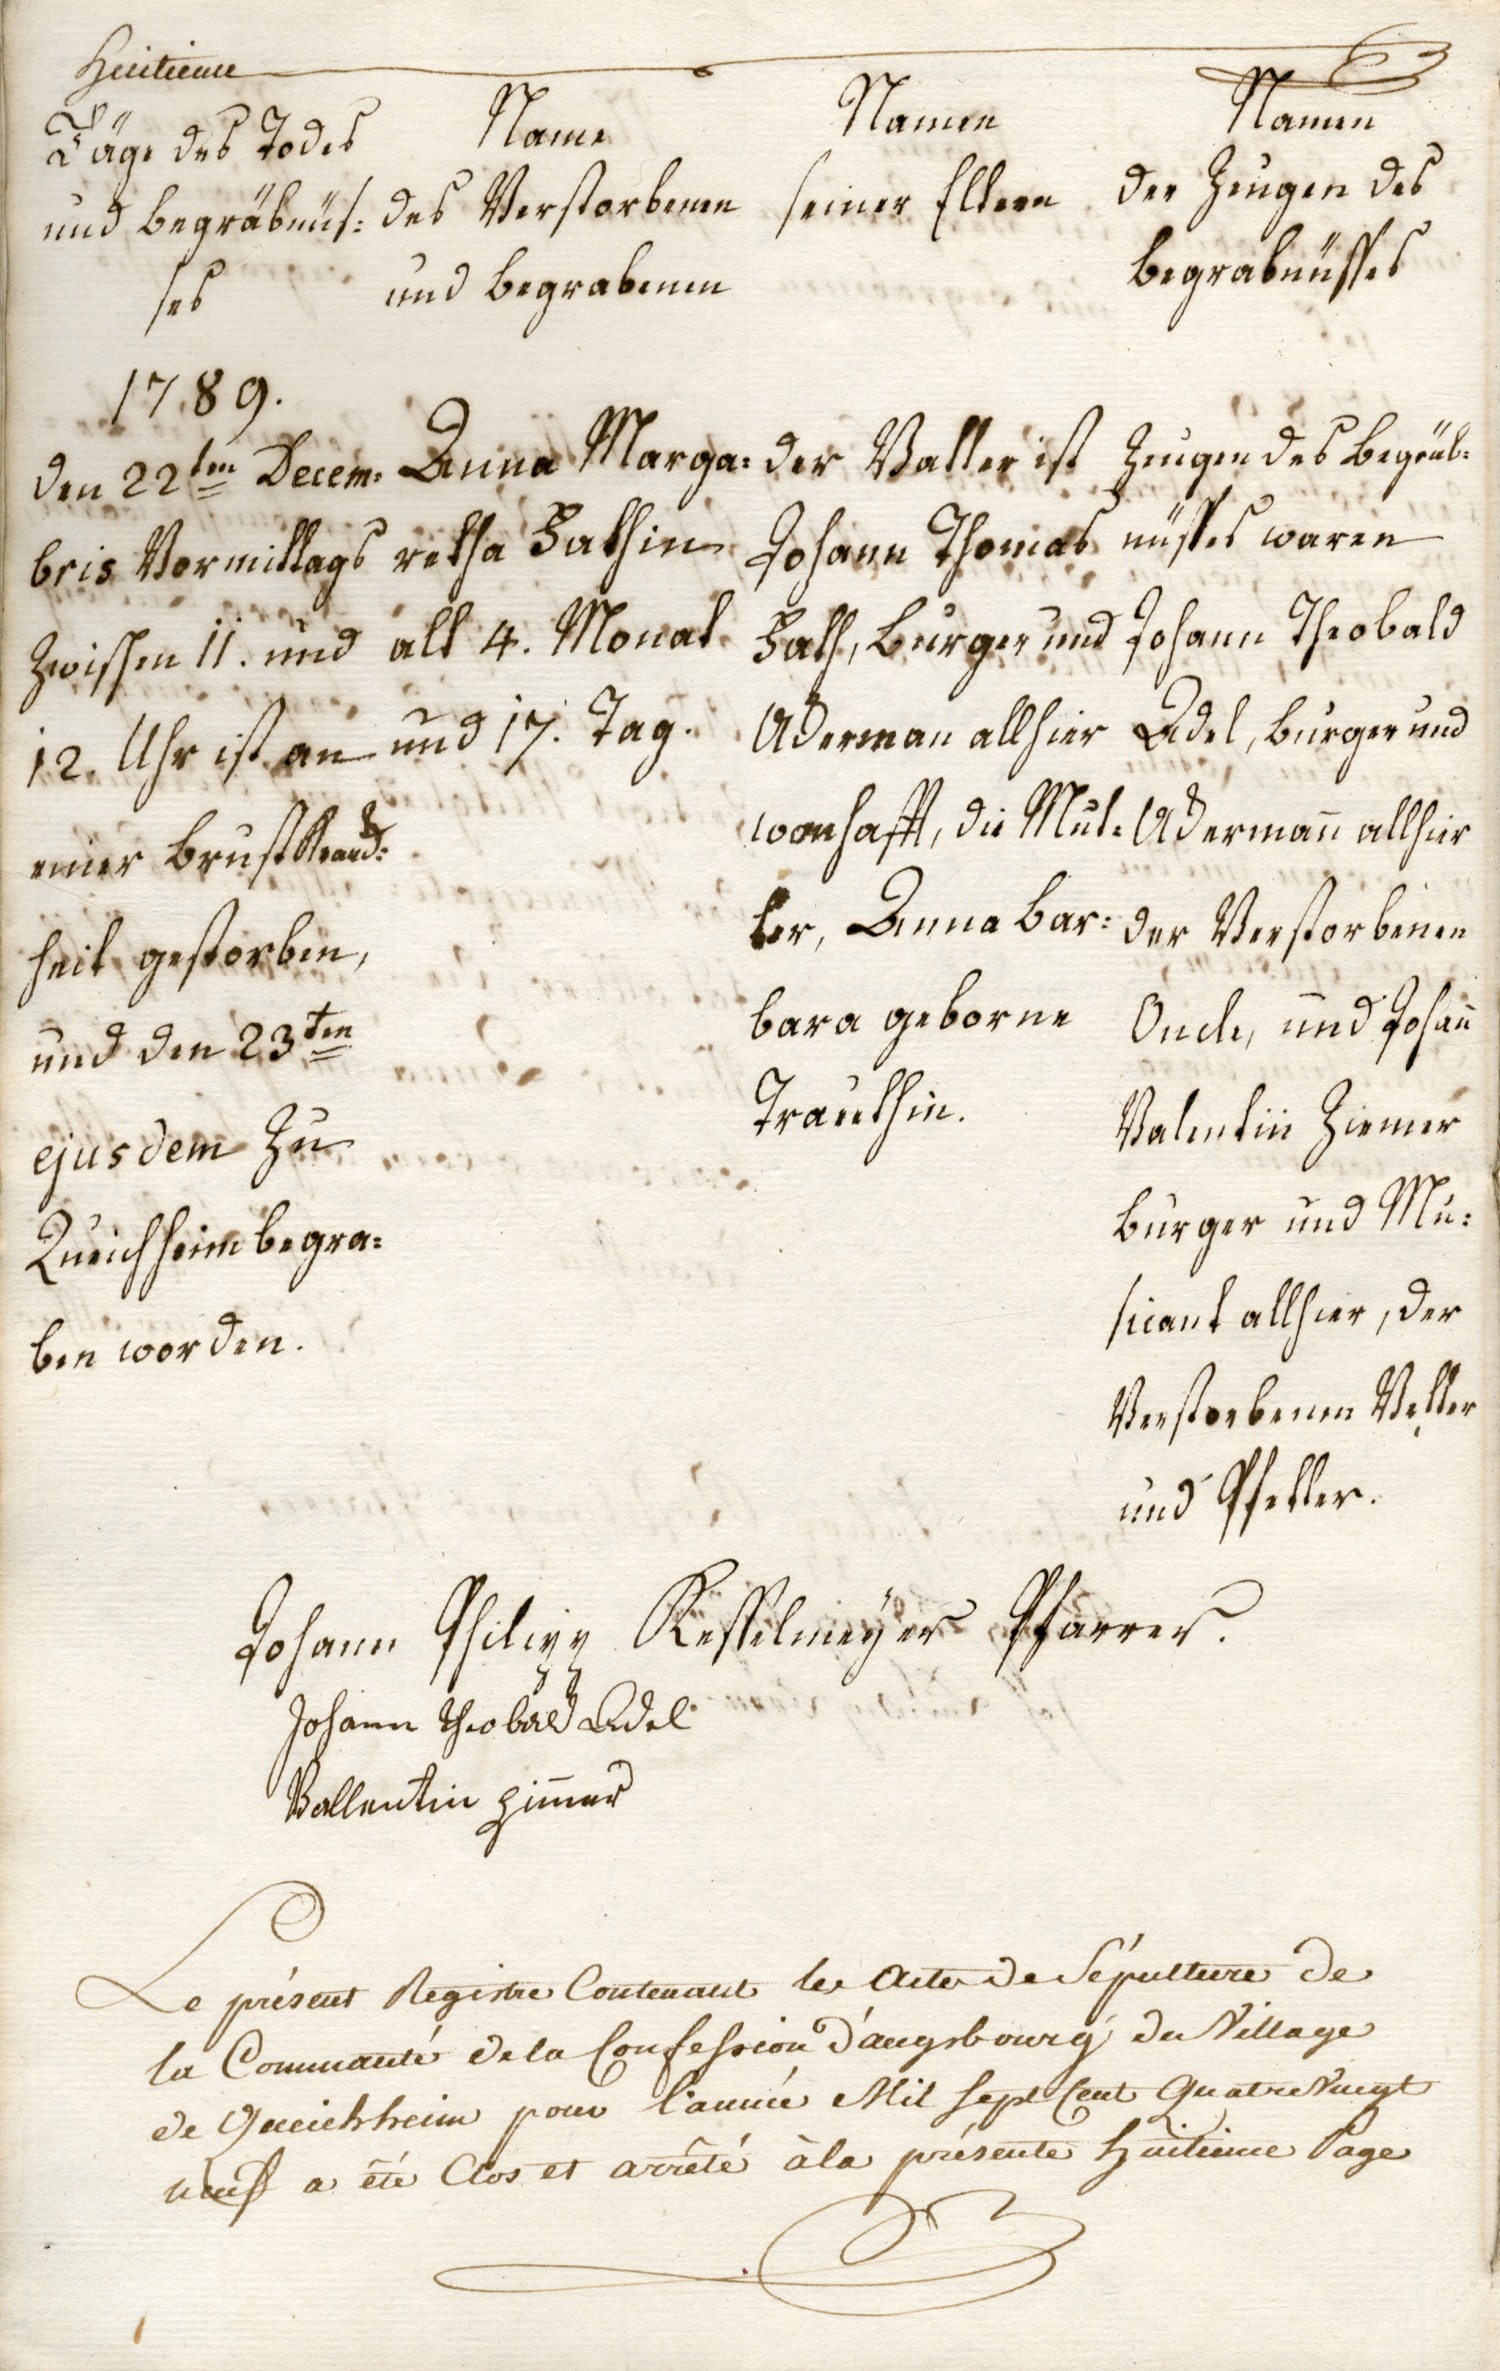 Huitieme
Täge des Todes
und Begräbnüs:
ses
Name
des Verstorbenen
und Begrabenen
Namen
seiner Eltern
Namen
der Zeugen des
Begrabnüsses
1789.
den 22ten Decem:
bris Vormittags
Zwischen 11. und
12. Uhr ist an
einer Brustkranck:
heit gestorben,
und den 23ten
ejusdem Zu
Queichheim begra:
ben worden.
Anna Marga:
retha Bathin
alt 4. Monat
und 17. Tag.
der Vatter ist
Johann Thomas
Bath, Burger und
Ackerman allhier
wonhafft, die Mut:
ter, Anna Bar:
bara geborne
Trauthin.
Zeugen des Begräb:
nüsses waren
Johann Theobald
Adel, Burger und
Ackermañ allhier
der Verstorbenen
Oncle, und Johañ
Valentin Ziemer
Burger und Mu:
sicant allhier, der
Verstorbenen Vetter
und Pfetter.
Johann Philipp Kesselmeÿer Pfarrer.
Johann Theobald Adel
Vallentin Zimer
Le présent Registre Contenant les Actes de Sépulture de
la Communauté de la Confession d'augsbourg du Village
de Queichheim pour l'année Mil Sept Cent Quatre Vingt
neuf a été Clos et arrêté à la présente huitieme Page